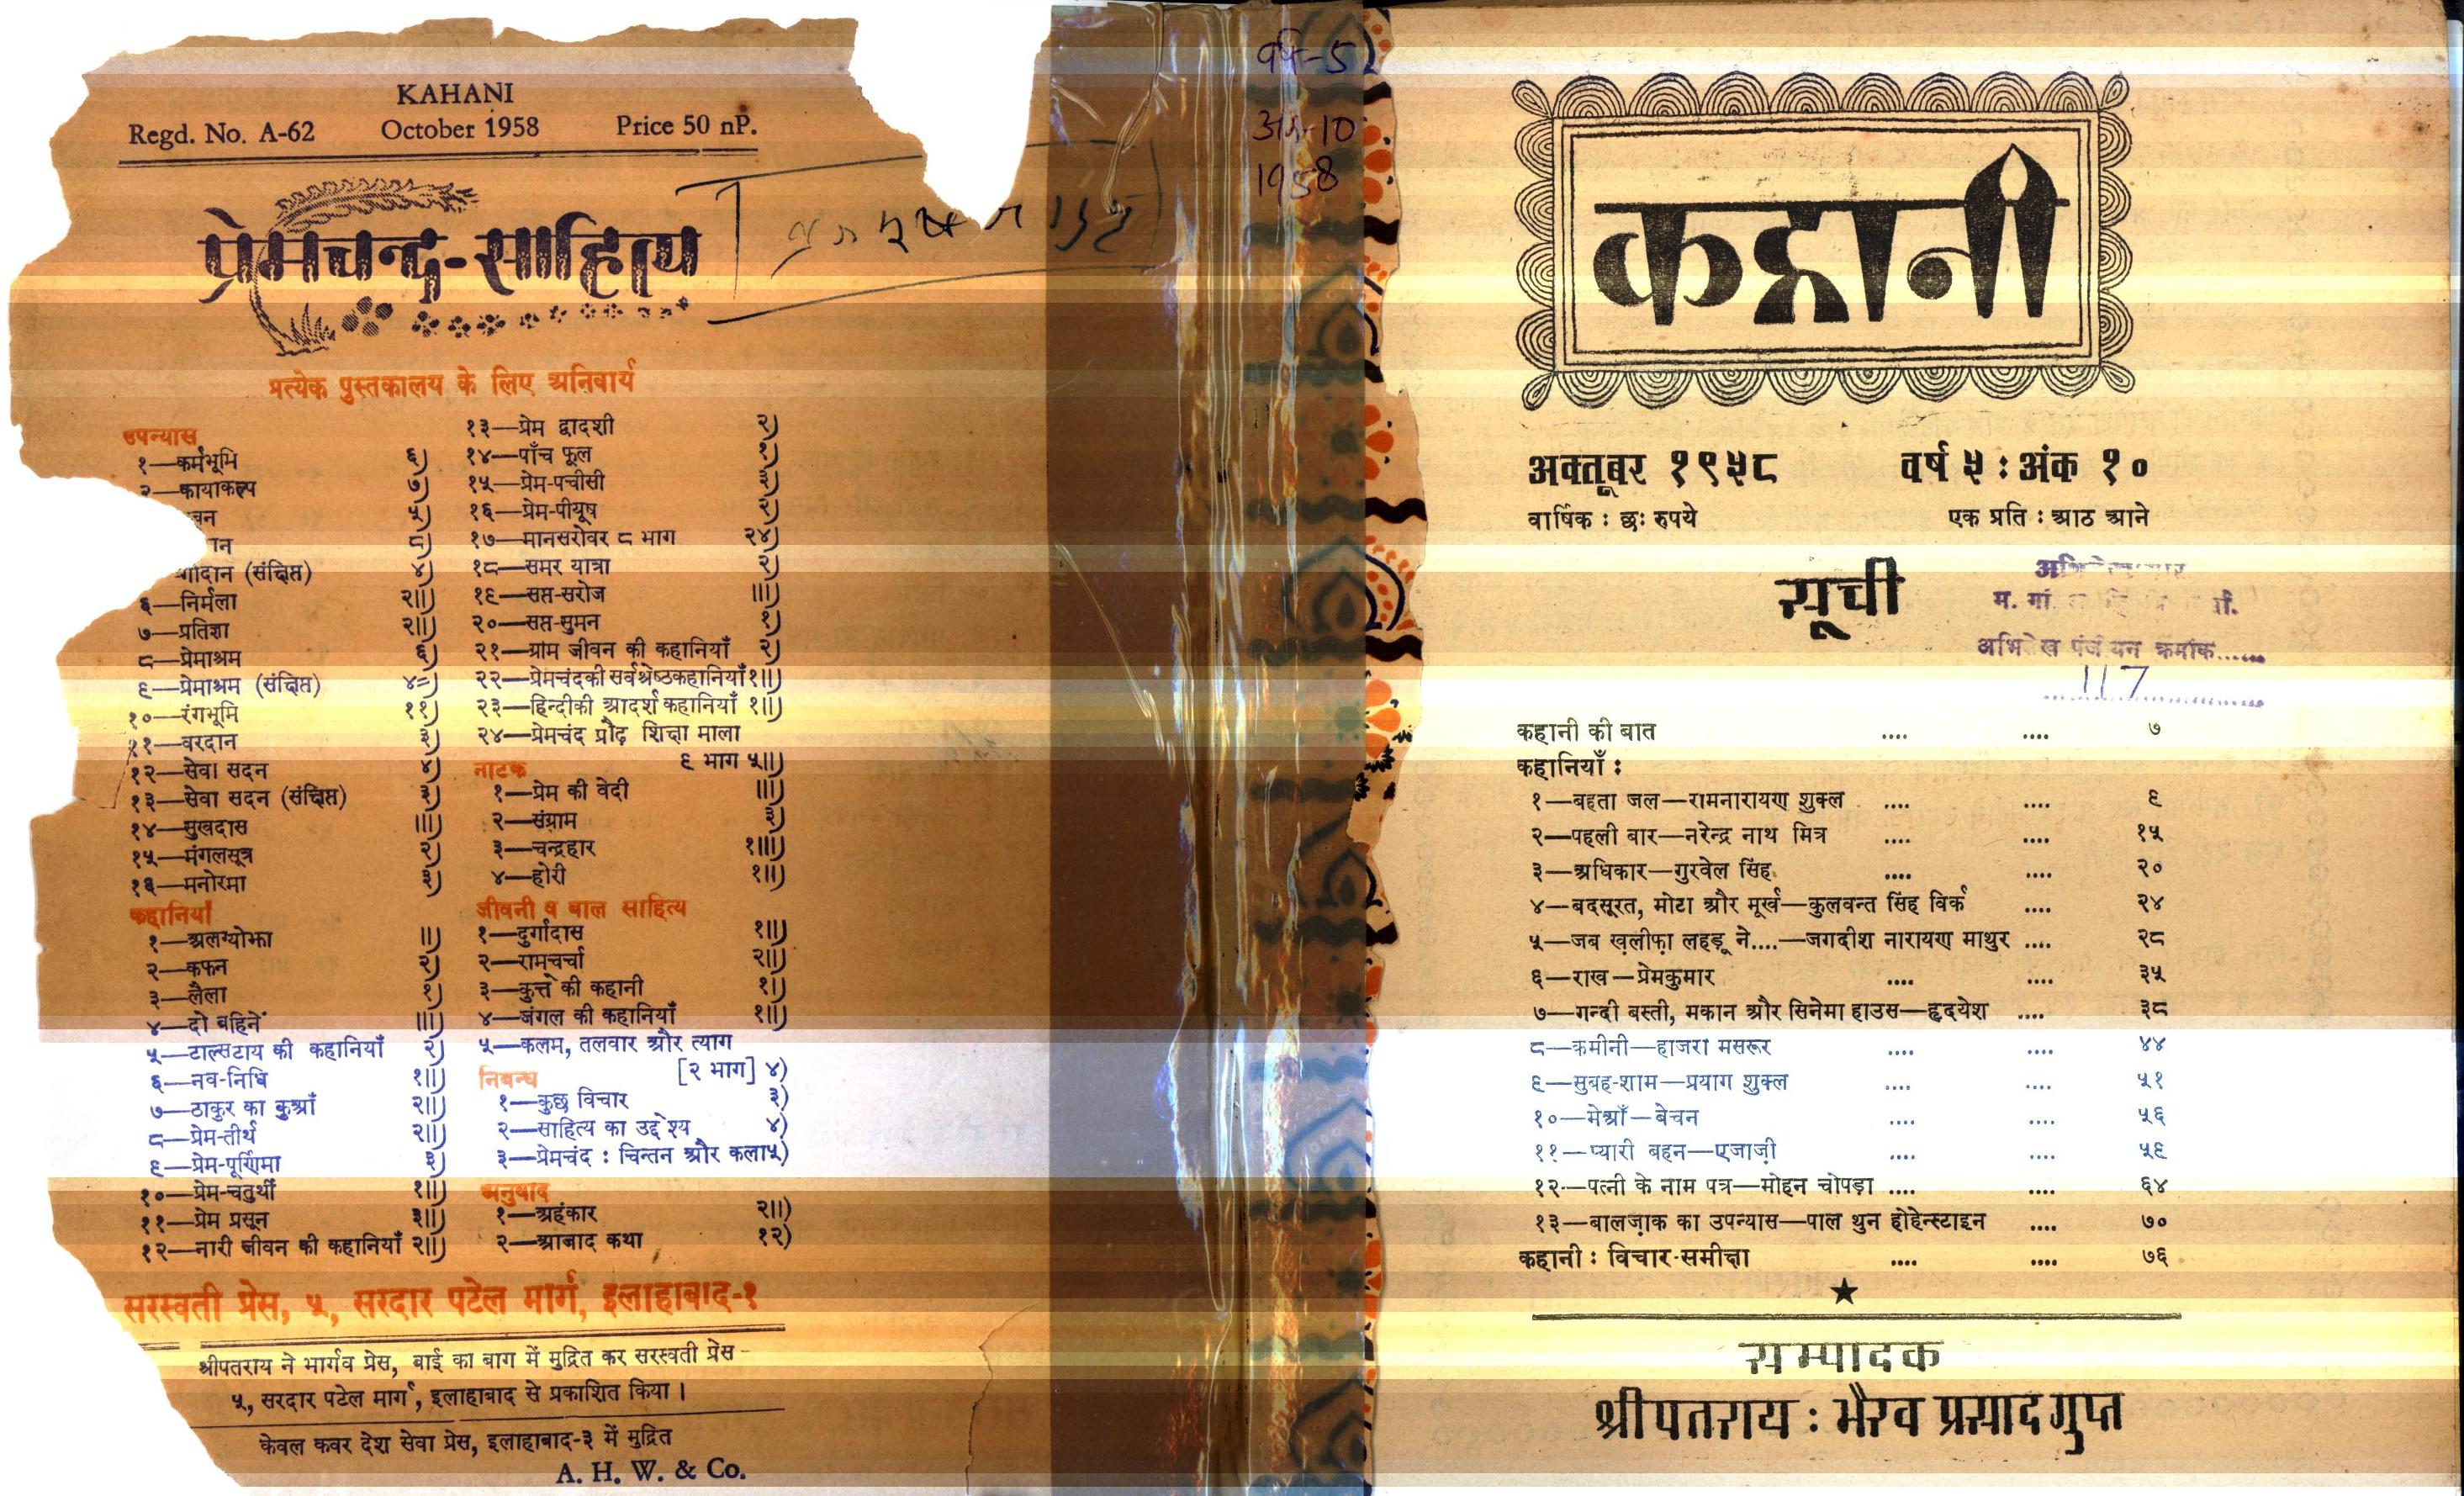 KAHANI
Regd. No. A-62 October 1958 Price 50 nP.
प्रेमचन्द-साहित्य
प्रत्येक पुस्तकालय के लिए अनिवार्य
उपन्यास
१—कर्मभूमि ६)
२—कायाकल्प ७)
गोदान (संक्षिप्त) ४)
६—निर्मला २॥)
७—प्रतिज्ञा २॥)
८—प्रेमाश्रम ६)
९—प्रेमाश्रम (संक्षिप्त)
१०—रंगभूमि ११)
११—वरदान ३)
१२—सेवा सदन ४)
१३—सेवा सदन (संक्षिप्त) ३)
१४—सुखदास ॥।)
१५—मंगलसूत्र २)
१६—मनोरमा ३)
कहानियाँ
१—अलग्योझा ॥)
२—कफन २)
३—लैला १)
४—दो बहिनें ॥।)
५—टाल्सटाय की कहानियाँ २)
६—नव-निधि १॥)
७—ठाकुर का कुआँ २॥)
८—प्रेम-तीर्थ २॥)
९—प्रेम-पूर्णिमा ३)
१०—प्रेम-चतुर्थी १॥)
११—प्रेम प्रसून ३॥)
१२—नारी जीवन की कहानियाँ २॥)
१३—प्रेम द्वादशी २)
१४—पाँच फूल
१५—प्रेम-पचीसी ३)
१६—प्रेम-पीयूष २)
१७—मानसरोवर ८ भाग २४)
१८—समर यात्रा २)
१९—सप्त-सरोज ॥।)
२०—सप्त-सुमन
२१—ग्राम जीवन की कहानियाँ २)
२२—प्रेमचंदकी सर्वश्रेष्ठकहानियाँ १॥)
२३—हिन्दीकी आदर्श कहानियाँ १॥)
२४—प्रेमचंद प्रौढ़ शिक्षा माला
९ भाग ५॥)
नाटक
१—प्रेम की वेदी ॥।)
२—संग्राम ३)
३—चन्द्रहार १॥।)
४—होरी १॥)
जीवनी व बाल साहित्य
१—दुर्गादास १॥)
२—रामचर्चा २॥)
३—कुत्ते की कहानी १)
४—जंगल की कहानियाँ १॥)
५—कलम, तलवार और त्याग
[२ भाग] ४)
निबन्ध
१—कुछ विचार ३)
२—साहित्य का उद्देश्य ४)
३—प्रेमचंद : चिन्तन और कला ५)
अनुवाद
१—अहंकार २॥)
२—आजाद कथा १२)
सरस्वती प्रेस, ५, सरदार पटेल मार्ग, इलाहाबाद-१
श्रीपतराय ने भार्गव प्रेस, बाई का बाग में मुद्रित कर सरस्वती प्रेस-
५, सरदार पटेल मार्ग, इलाहाबाद से प्रकाशित किया।
केवल कवर देश सेवा प्रेस, इलाहाबाद-३ में मुद्रित
A. H. W. & Co.
वर्ष-5
अंक-10
1958
कहानी
अक्तूबर १९५८ वर्ष ५ : अंक १०
वार्षिक : छः रुपये एक प्रति : आठ आने
सूची
अभिलेख पंजीयन क्रमांक......
117
कहानी की बात .... .... ७
कहानियाँ :
१—बहता जल—रामनारायण शुक्ल .... .... ९
२—पहली बार—नरेन्द्र नाथ मित्र .... .... १५
३—अधिकार—गुरवेल सिंह .... .... २०
४—बदसूरत, मोटा और मूर्ख—कुलवन्त सिंह विर्क .... २४
५—जब ख़लीफ़ा लहड़ू ने....—जगदीश नारायण माथुर .... २८
६—राख—प्रेमकुमार .... .... ३५
७—गन्दी बस्ती, मकान और सिनेमा हाउस—हृदयेश .... ३८
८—कमीनी—हाजरा मसरूर .... .... ४४
९—सुबह-शाम—प्रयाग शुक्ल .... .... ५१
१०—मेआँ—बेचन .... .... ५६
११—प्यारी बहन—एजाज़ी .... .... ५९
१२—पत्नी के नाम पत्र—मोहन चोपड़ा .... .... ६४
१३—बालज़ाक का उपन्यास—पाल थुन होहेन्स्टाइन .... ७०
कहानी : विचार-समीक्षा .... .... ७६
सम्पादक
श्रीपतराय : भैरव प्रसाद गुप्त